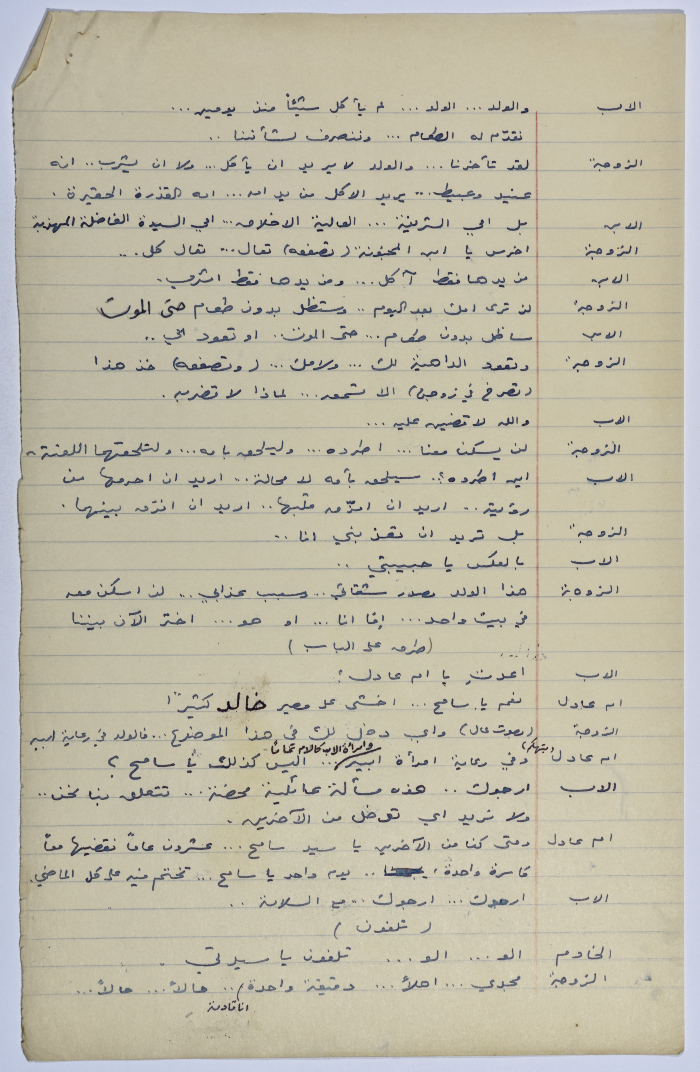 الاب والولد... الولد... لم يأكل شيئاً منذ يومين...
نقدّم له الطعام... وننصرف لشأننا..
الزوجة لقد تأخرنا... والولد لا يريد ان يأكل... ولا ان يشرب.. انه
عنيد وعبيط... يريد الاكل من يد امه... امه القذرة الحقيرة.
الابن بل امي الشريفة... العالية الاخلاق... امي السيدة الفاضلة المهذبة
الزوجة اخرس يا ابن المجنونة (تصفعه) تعال... تعال كل...
الابن من يدها فقط آكل... ومن يدها فقط اشرب.
الزوجة لن ترى امك بعد اليوم.. وستظل بدون طعام حتى الموت
الابن سأظل بدون طعام... حتى الموت.. او تعود امي..
الزوجة وتعود الداهية لك... ولامك... (وتصفعه) خذ هذا
(تصرخ في زوجها) الا تسمعه... لماذا لا تضربه.
الاب والله لاقضين عليه...
الزوجة لن يسكن معنا... اطرده... وليلحق بامه... ولتلحقهما اللعنة..
الاب اين أطرده؟.. سيلحق بأمه لا محالة... اريد ان احرمها من
رؤيته.. اريد ان امزّق قلبها.. اريد ان افرّق بينهما.
الزوجة بل تريد ان تعذبني انا..
الاب بالعكس يا حبيبتي..
الزوجة هذا الولد مصدر شقائي.. وسبب عذابي.. لن اسكن معه
في بيت واحد... إمّا انا... او هو... اختر الآن بيننا
(طرق على الباب)
الاب اعدتِ يا ام عادل؟
ام عادل نعم يا سامح... اخشى على مصير خالد كثيرًا
الزوجة (بصوت عال) واي دخل لك في هذا الموضوع... فالولد في رعاية ابيه
ام عادل (بتهكم) وفي رعاية امرأة ابيه... أليس كذلك يا سامح؟
وامرأة الاب كالام تمامًا
الاب ارجوك.. هذه مسألة عائلية محضة... تتعلق بنا نحن..
ولا نريد اي تدخل من الآخرين.
ام عادل ومتى كنا من الآخرين يا سيد سامح... عشرون عاماً نقضيها معاً
كاسرة واحدة.. يوم واحد يا سامح... تختم فيه على كل الماضي.
الاب ارجوك... ارجوك.. مع السلامة..
(تلفون)
الخادم الو... الو... تلفون يا سيدتي.
الزوجة مجدي... اهلاً... دقيقة واحدة.. حالاً... حالاً...
انا قادمة